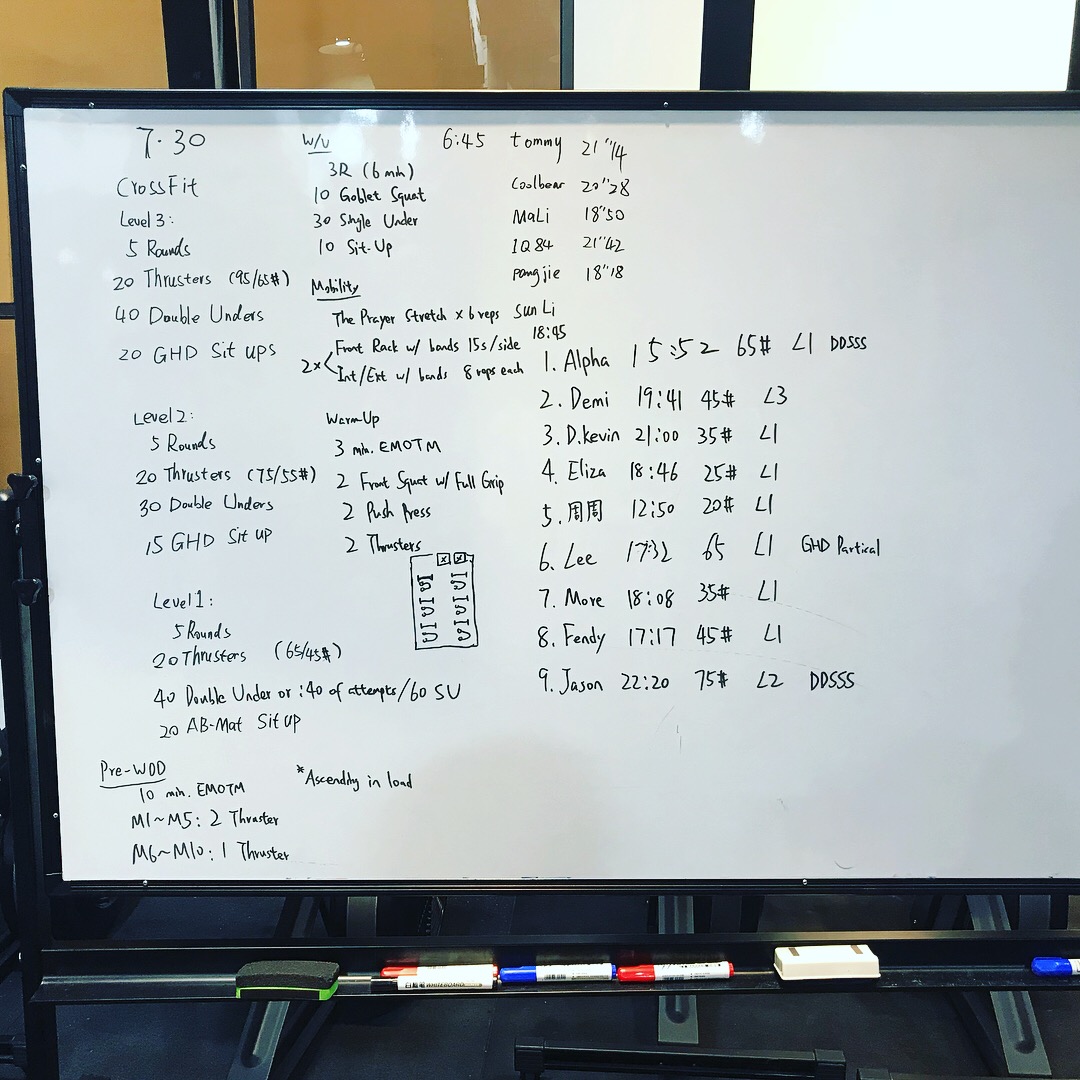 7.30
CrossFit
Level 3:
5 Rounds
20 Thrusters (95/65#)
40 Double Unders
20 GHD Sit ups
Level 2:
5 Rounds
20 Thrusters (75/55#)
30 Double Unders
15 GHD Sit up
Level 1:
5 Rounds
20 Thrusters (65/45#)
40 Double Under or :40 of attempts/60 SU
20 AB-Mat Sit up
Pre-WOD
10 min. EMOTM
M1~M5: 2 Thruster
M6~M10: 1 Thruster
*Ascending in load
W/U
3R (6 min)
10 Goblet Squat
30 Single Under
10 Sit-Up
Mobility
The Prayer Stretch x 6 reps
2x
Front Rack w/ bands 15s/side
Int/Ext w/ bands 8 reps each
Warm Up
3 min. EMOTM
2 Front Squat w/ Full Grip
2 Push Press
2 Thrusters
6:45
tommy 21"14
Coolbear 20"28
MaLi 18"50
1Q84 21"42
pangjie 18"18
Sun Li
18:45
1. Alpha 15:52 65# L1 DDSSS
2. Demi 19:41 45# L3
3. D.kevin 21:00 35# L1
4. Eliza 18:46 25# L1
5. 周周 12:50 20# L1
6. Lee 17:32 65 L1 GHD Partical
7. More 18:08 35# L1
8. Fendy 17:17 45# L1
9. Jason 22:20 75# L2 DDSSS
WHITEBOARD